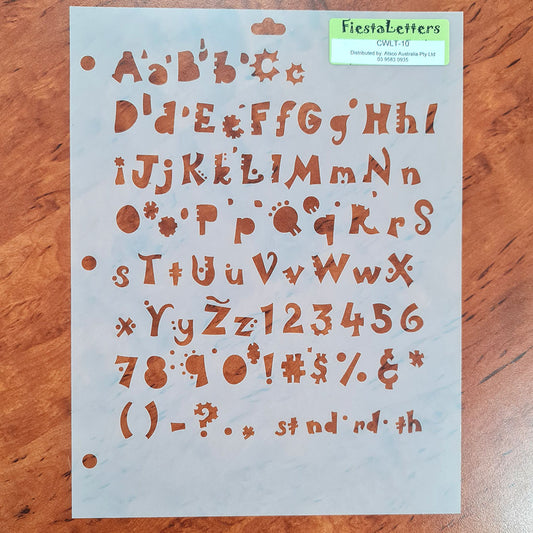 FiestaLetters
CWLT-10
Distributed by: Atsco Australia Pty Ltd
03 9583 9935
AaBbCc
DdEeFfGgHhI
iJjKkLlMmNn
OoPpQqRrS
sTtUuVvWwX
xYyZz123456
7890!#$%&*
()-?., st nd rd th